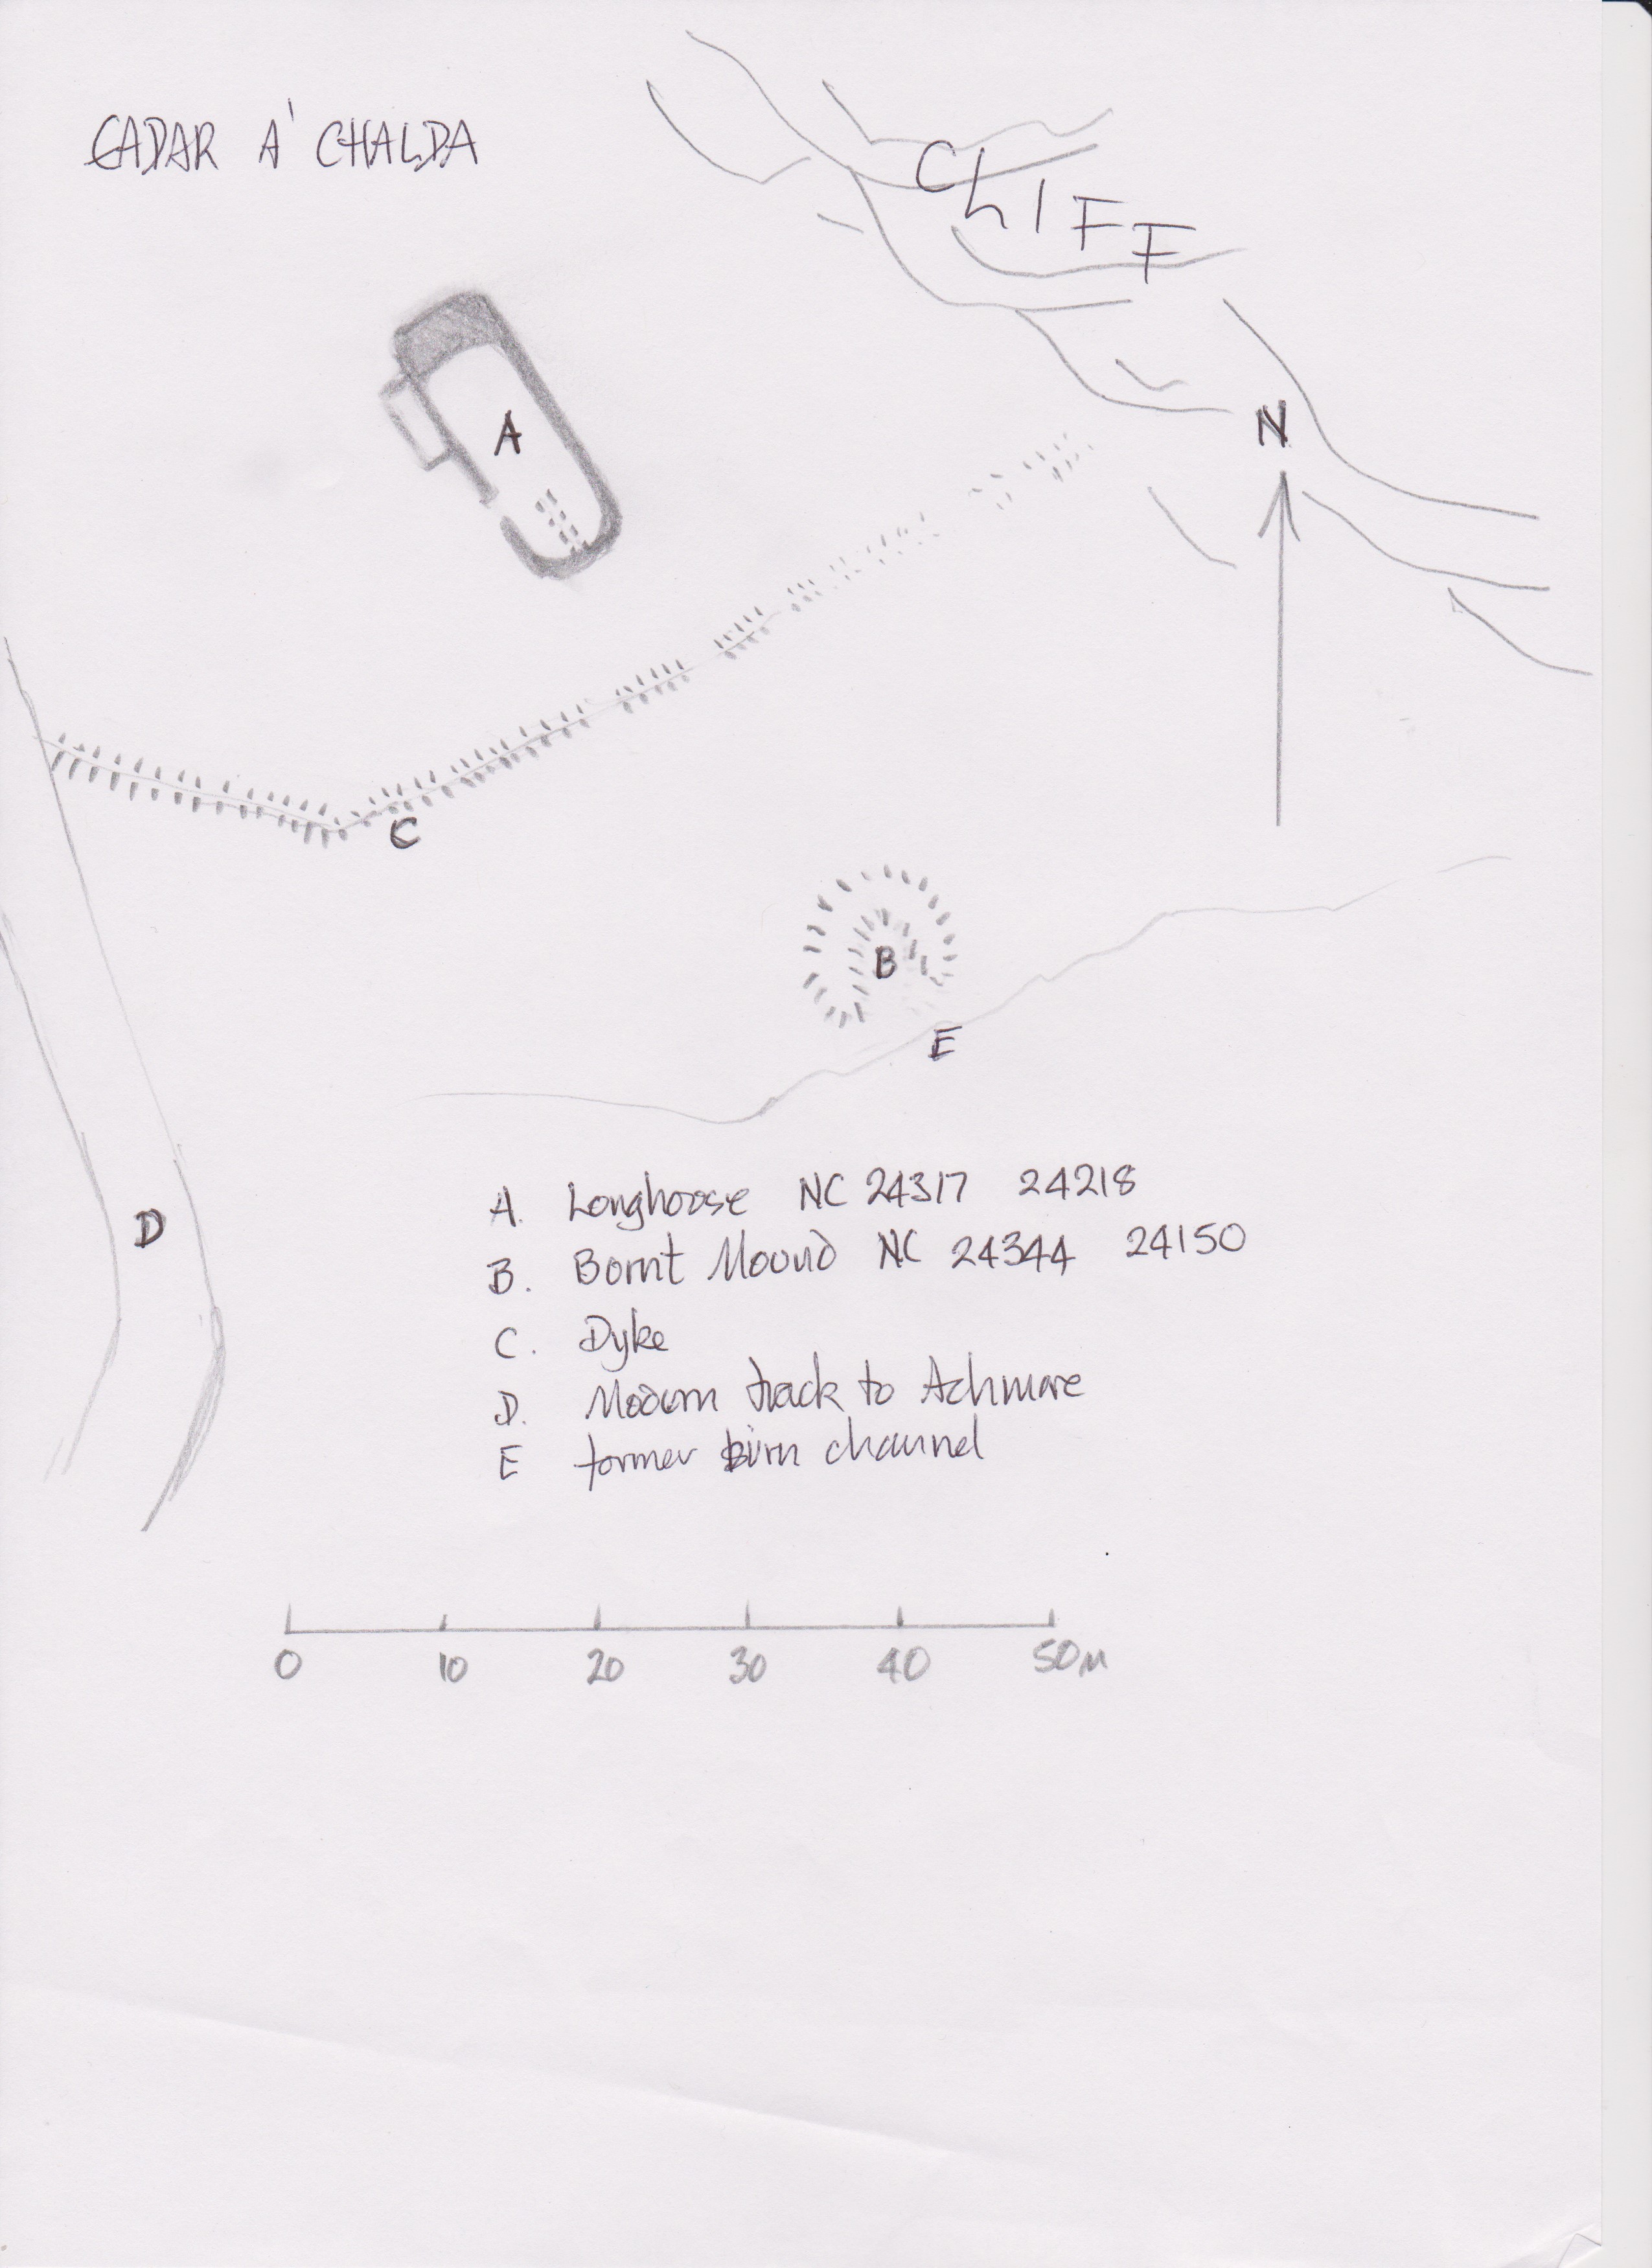 EADAR A' CHALDA
CLIFF
N
A
C
B
E
D
A. Longhouse NC 24317 24218
B. Burnt Mound NC 24344 24150
C. Dyke
D. Modern track to Achmore
E former burn channel
0 10 20 30 40 50m